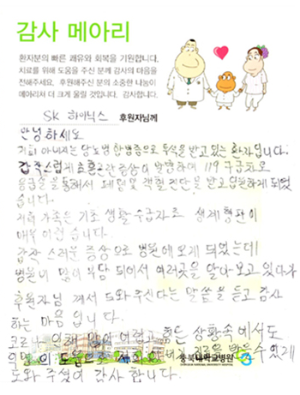 감사 메아리
환자분의 빠른 쾌유와 회복을 기원합니다.
치료를 위해 도움을 주신 분께 감사의 마음을
전해주세요. 후원해주신 분의 소중한 나눔이
메아리되어 더 크게 울릴 것입니다. 감사합니다.
SK 하이닉스 후원자님께
안녕하세요
저희 아버지는 당뇨병 합병증으로 투석을 받고 있는 환자입니다.
갑작스럽게 호흡곤란 증상이 발생하여 119 구급차로
응급실을 통해서 폐렴 및 결핵 진단을 받고 입원하게 되었
습니다.
저희 가족은 기초 생활 수급자로 생계 형편이
매우 어렵습니다
갑작스러운 증상으로 병원에 오게 되었는데
병원비 많이 부담 되어서 여러곳을 알아보고 있다가
후원자님 께서 도와주신다는 말씀을 듣고 감사
하는 마음 입니다.
코로나 인해 많이 어렵고 힘든 상황속에서도
도움으로 치료 받을수 있게
도와 주셨어 감사 합니다.
충북대학교병원